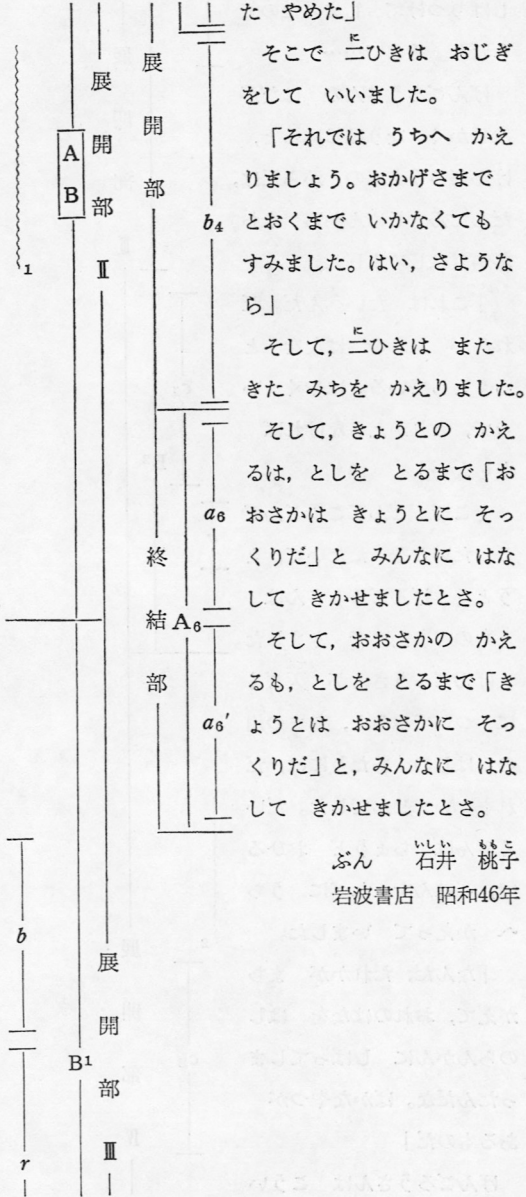 た　やめた」
そこで　二ひきは　おじぎ
に
をして　いいました。
「それでは　うちへ　かえ
りましょう。おかげさまで
とおくまで　いかなくても
すみました。はい，さような
ら」
そして，二ひきは　また
に
きた　みちを　かえりました。
そして，きょうとの　かえ
るは，としを　とるまで「お
おさかは　きょうとに　そっ
くりだ」と　みんなに　はな
して　きかせましたとさ。
そして，おおさかの　かえ
るも，としを　とるまで「き
ょうとは　おおさかに　そっ
くりだ」と，みんなに　はな
して　きかせましたとさ。
ぶん　石井　桃子
いしい　ももこ
岩波書店　昭和46年
b4
a6
A6
a6′
展開部
終結部
展開部　Ⅱ
A B
1
展開部　Ⅲ
B1
b
r